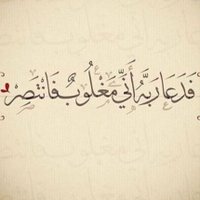 فَدَعَا رَبَّهُ أَنِّي مَغْلُوبٌ فَانْتَصِرْ